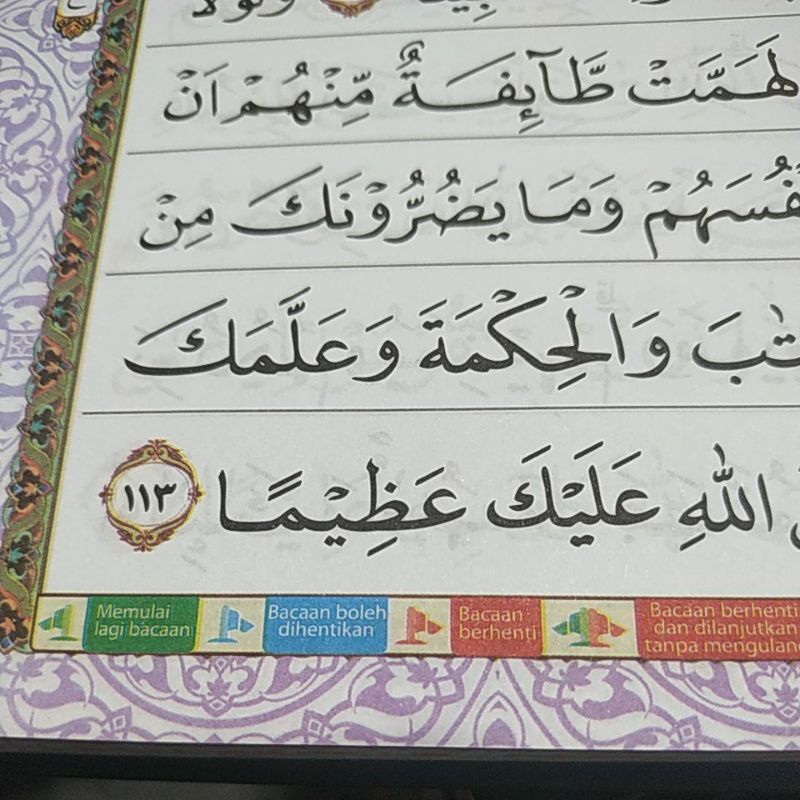 لَهَمَّتْ طَّاۤىِٕفَةٌ مِّنْهُمْ اَنْ
وَمَا يَضُرُّوْنَكَ مِنْ
وَالْحِكْمَةَ وَعَلَّمَكَ
اللّٰهِ عَلَيْكَ عَظِيْمًا ١١٣
Memulai lagi bacaan
Bacaan boleh dihentikan
Bacaan berhenti
Bacaan berhenti dan dilanjutkan tanpa